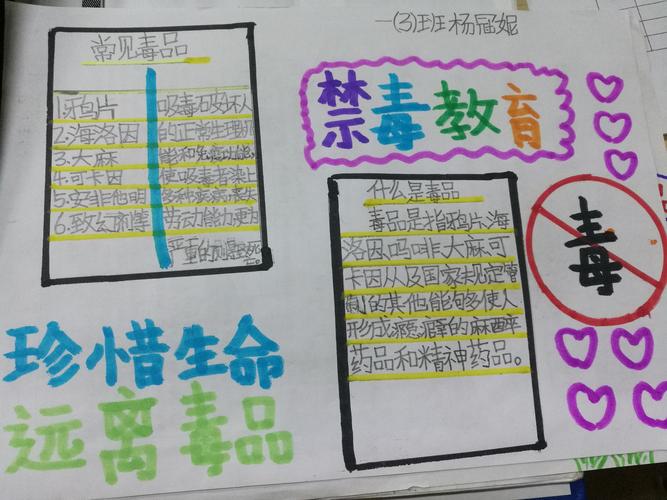 一(3)班杨冠妮
常见毒品
1.鸦片
2.海洛因
3.大麻
4.可卡因
5.安非他明
6.致幻剂等
吸毒破坏人
的正常生理机
能和免疫功能,
使吸毒者染上
多种疾病丧失
劳动能力更为
严重的则是死亡。
禁毒教育
什么是毒品
毒品是指鸦片海
洛因吗啡大麻可
卡因从及国家规定管
制的其他能够多使人
形成瘾癖的麻醉
药品和精神药品。
毒
珍惜生命
远离毒品